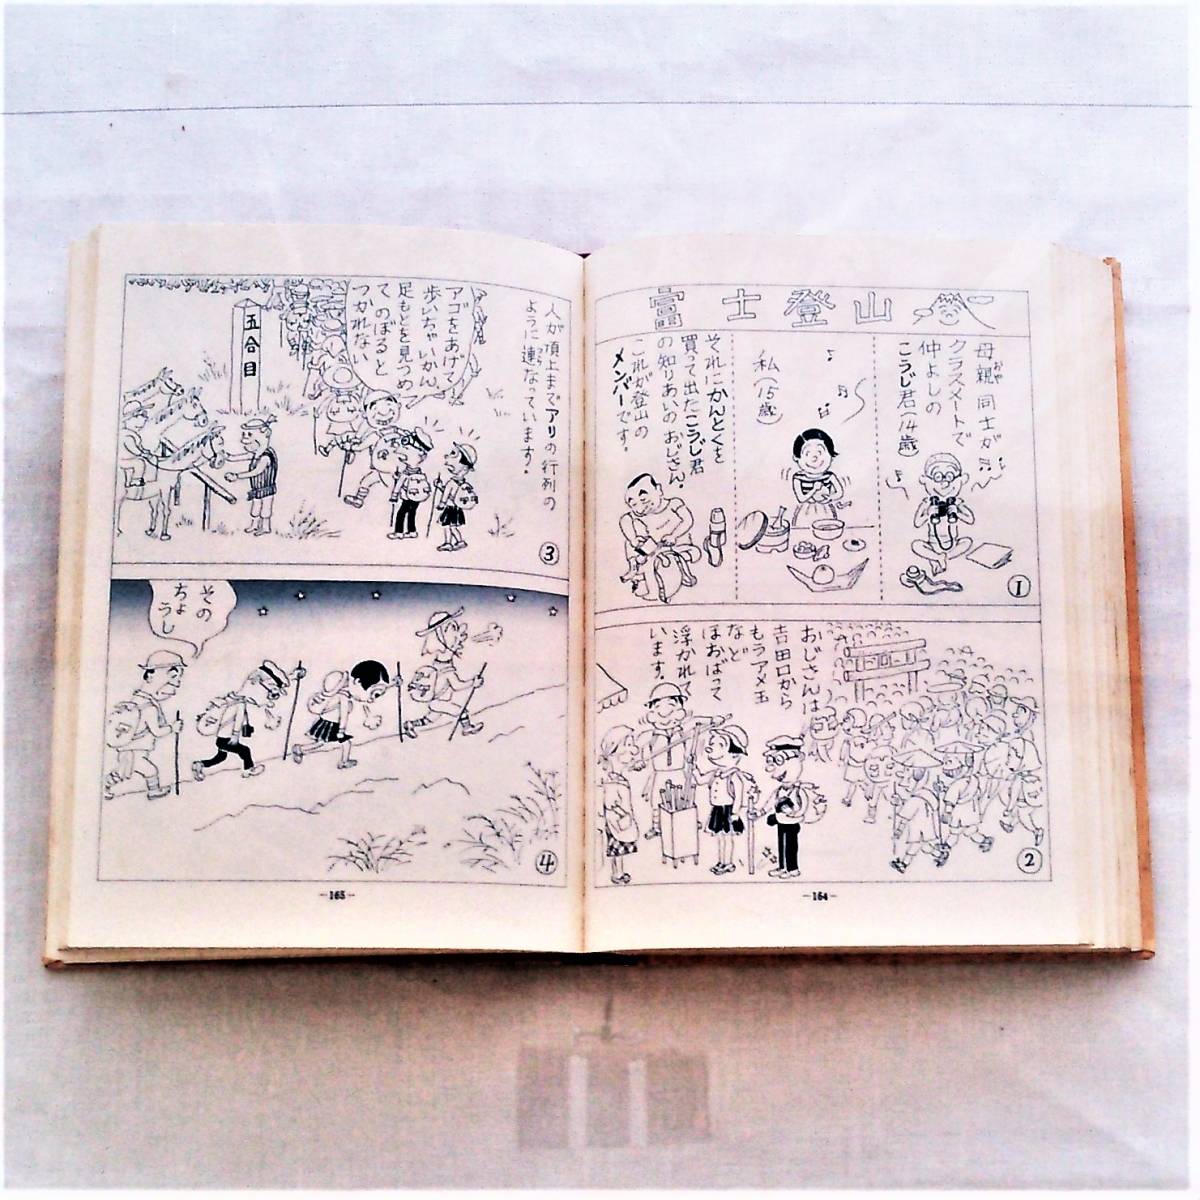 富士登山
母親同士が
おや
クラスメートで
仲よしの
こうじ君(14歳)
私(15歳)
それにかんとくを
買って出たこうじ君
の知りあいのおじさん。
これが登山の
メンバーです。
①
おじさんは
吉田口から
もうアメ玉
など
ほおばって
浮かれて
います。
②
—164—
人が頂上までアリの行列の
ように連なっています。
つら
アゴをあげて
歩いちゃいかん。
足もとを見つめ
てのぼると
つかれない
五合目
③
その
ちょうし
④
—165—